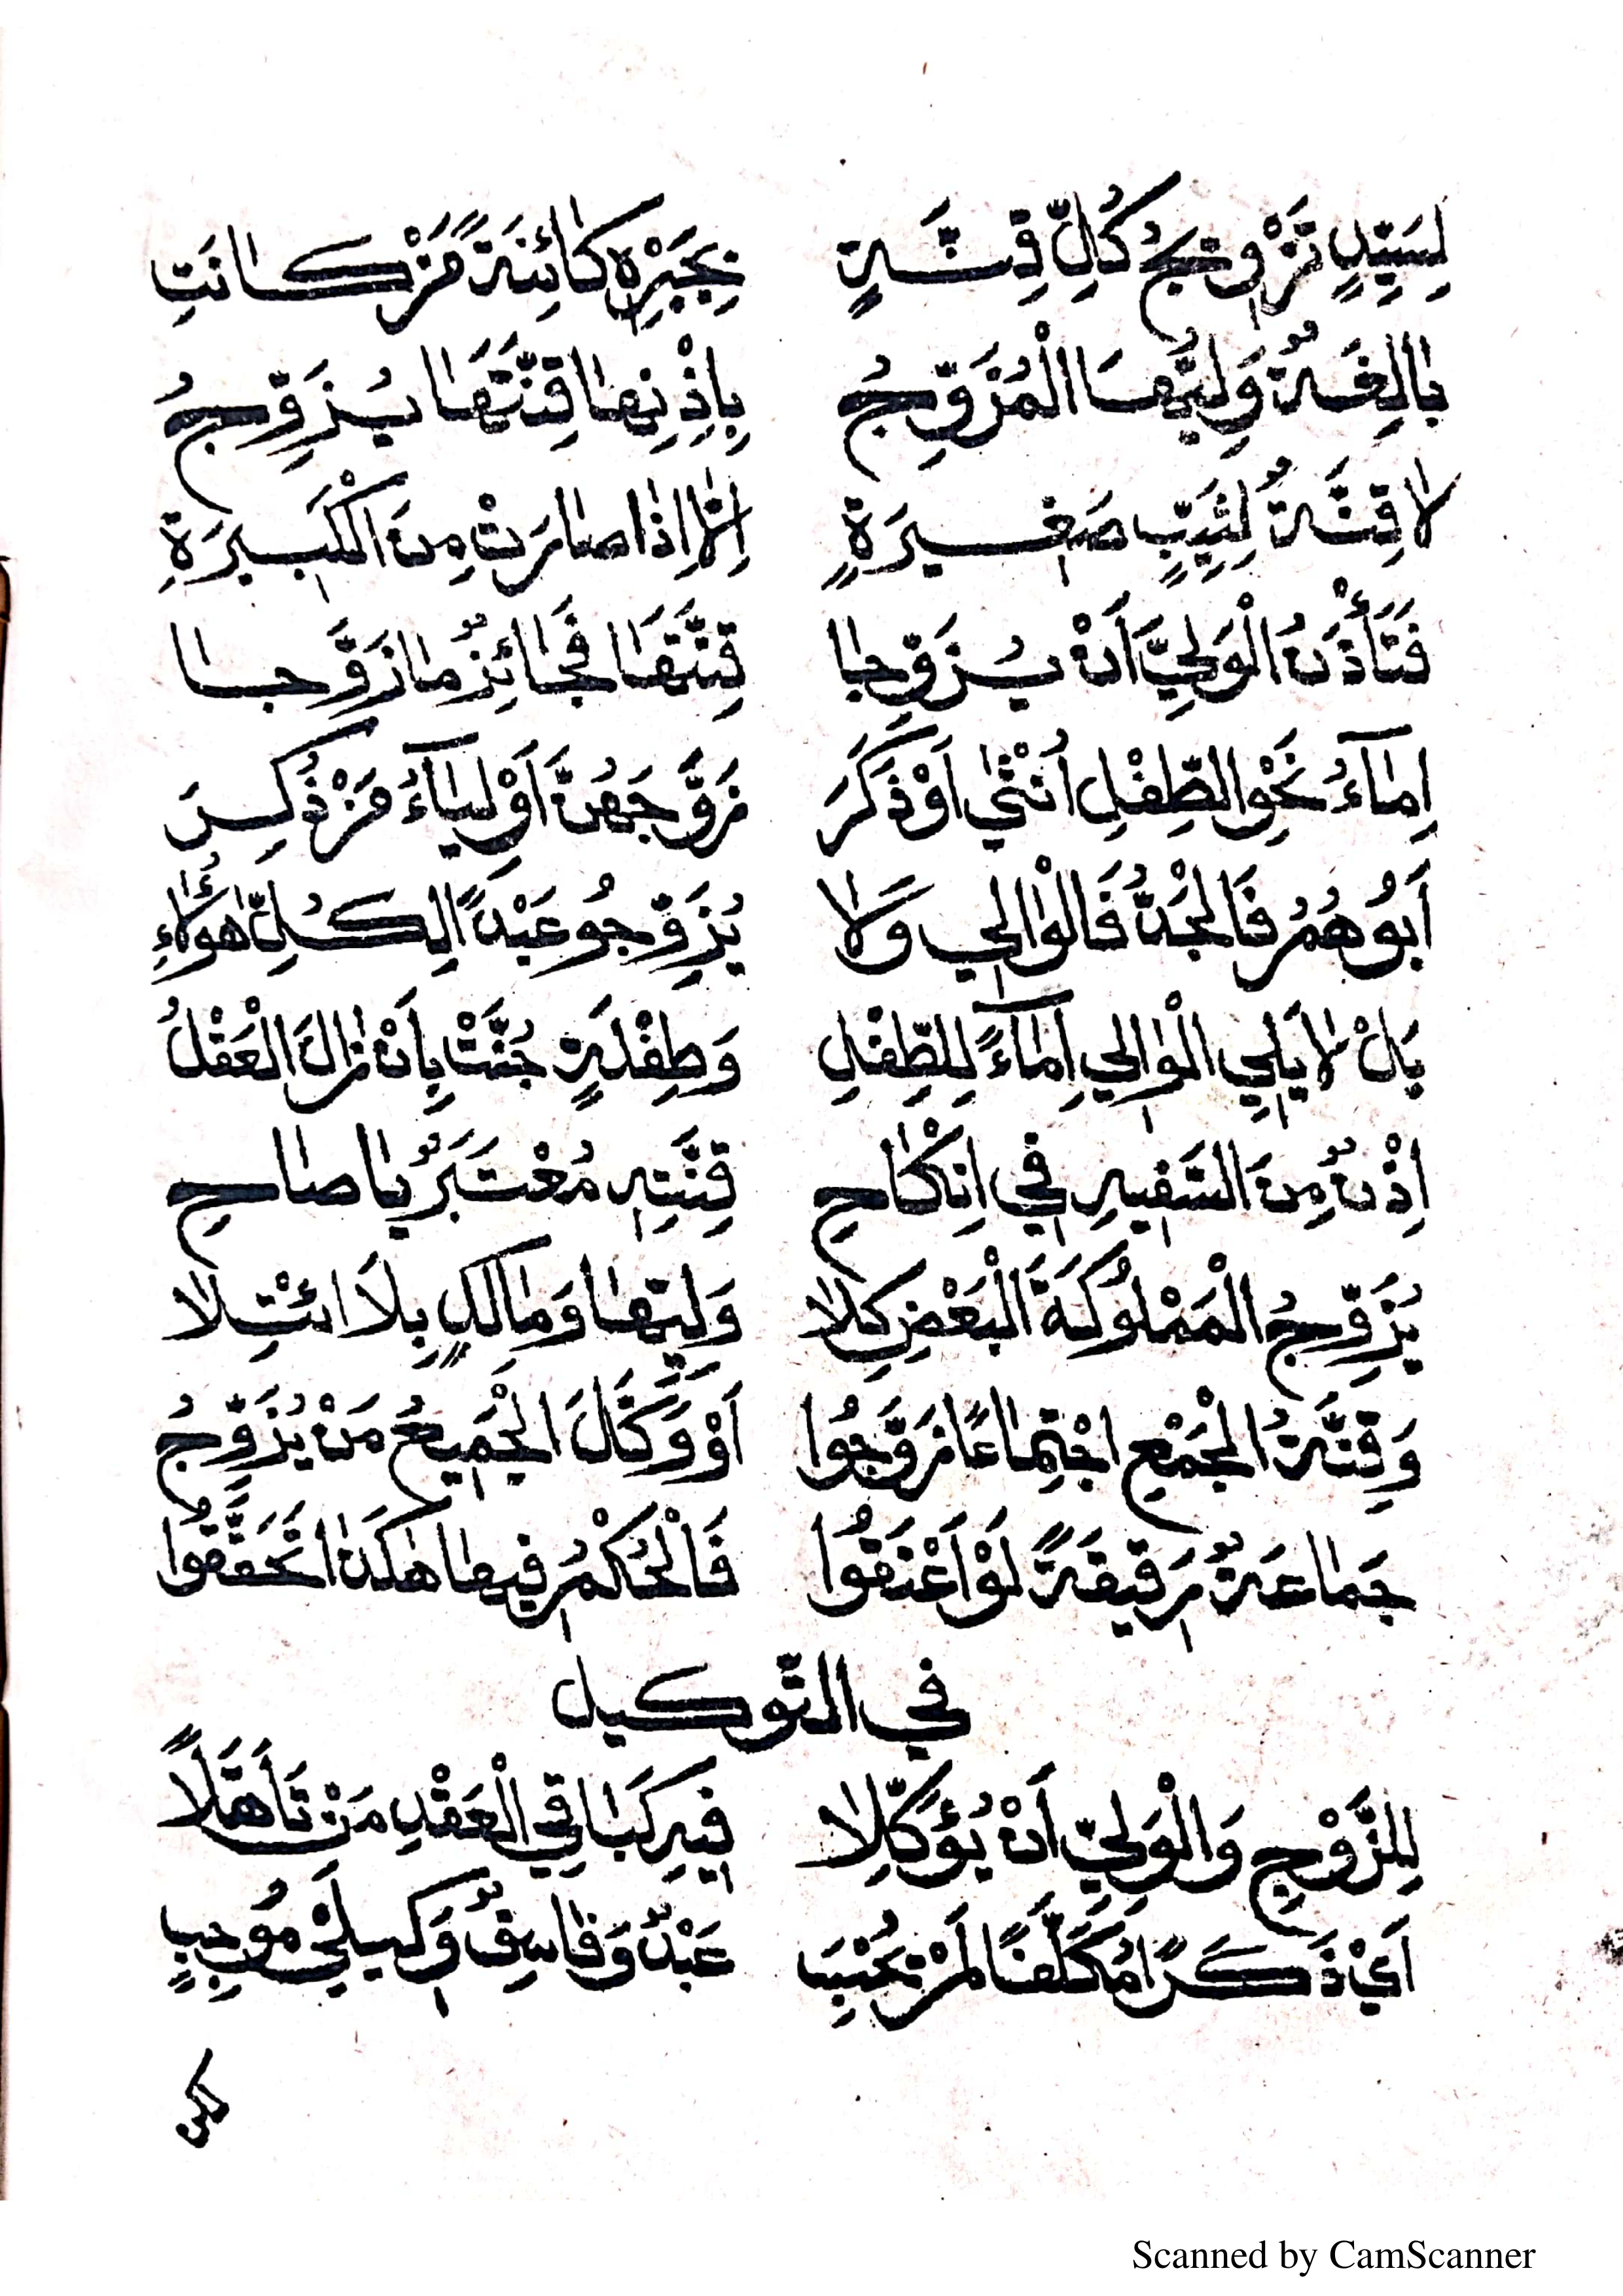 لِسَيِّدٍ تَزْوِيجُ كُلِّ قِنَّةٍ بِجَبْرِهِ كَائِنَةً مَنْ كَانَتِ
بَالِغَةٌ وَلِيُّهَا الْمُزَوِّجُ بِإِذْنِهَا قِنَّتَهَا يُزَوِّجُ
لَا قِنَّةٌ لِثَيِّبٍ صَغِيرَةٍ إِلَّا إِذَا صَارَتْ مِنَ الْكَبِيرَةِ
فَتَأْذَنُ الْوَلِيَّ أَنْ يُزَوِّجَا قِنَّتَهَا فَجَائِزٌ مَا زَوَّجَا
إِمَآءُ نَحْوِ الطِّفْلِ أُنْثَى أَوْ ذَكَرَ زَوَّجَهُنَّ أَوْلِيَآءُ مَنْ ذُكِرَ
أَبُوهُمُ فَالْجَدُّ فَالْوَالِي وَلَا يُزَوِّجُو عَبْدًا لِكُلِّ هَؤُلَاءِ
بَلْ لَا يَلِي الْوَالِي إِمَآءً لِلطِّفْلِ وَطِفْلَةٍ جُنَّتْ بِأَنْ زَالَ الْعَقْلُ
إِذْنٌ مِنَ السَّفِيهِ فِي إِنْكَاحِ قِنَّتِهِ مُعْتَبَرٌ يَا صَاحِ
يُزَوِّجُ الْمَمْلُوكَةَ الْبَعْضِ كِلَا وَلِيِّهَا وَمَالِكٍ بِلَا ائْتِلَا
وَقِنَّةُ الْجَمْعِ اجْتِمَاعًا زَوَّجُوا أَوْ وَكَّلَ الْجَمِيعُ مَنْ يُزَوِّجُ
جَمَاعَةٌ رَقِيقَةً لَوْ أَعْتَقُوا فَالْحُكْمُ فِيهَا هَكَذَا تَحَقَّقُوا
في التّوكيل
لِلزَّوْجِ وَالْوَلِيِّ أَنْ يُوَكِّلَا فِيهِ كَبَاقِي الْعَقْدِ مَنْ تَأَهَّلَا
أَيْ ذَكَرًا مُكَلَّفًا لَمْ عَبْدٌ وَفَاسِقٌ وَكِيلَيْ مُوجِبٍ